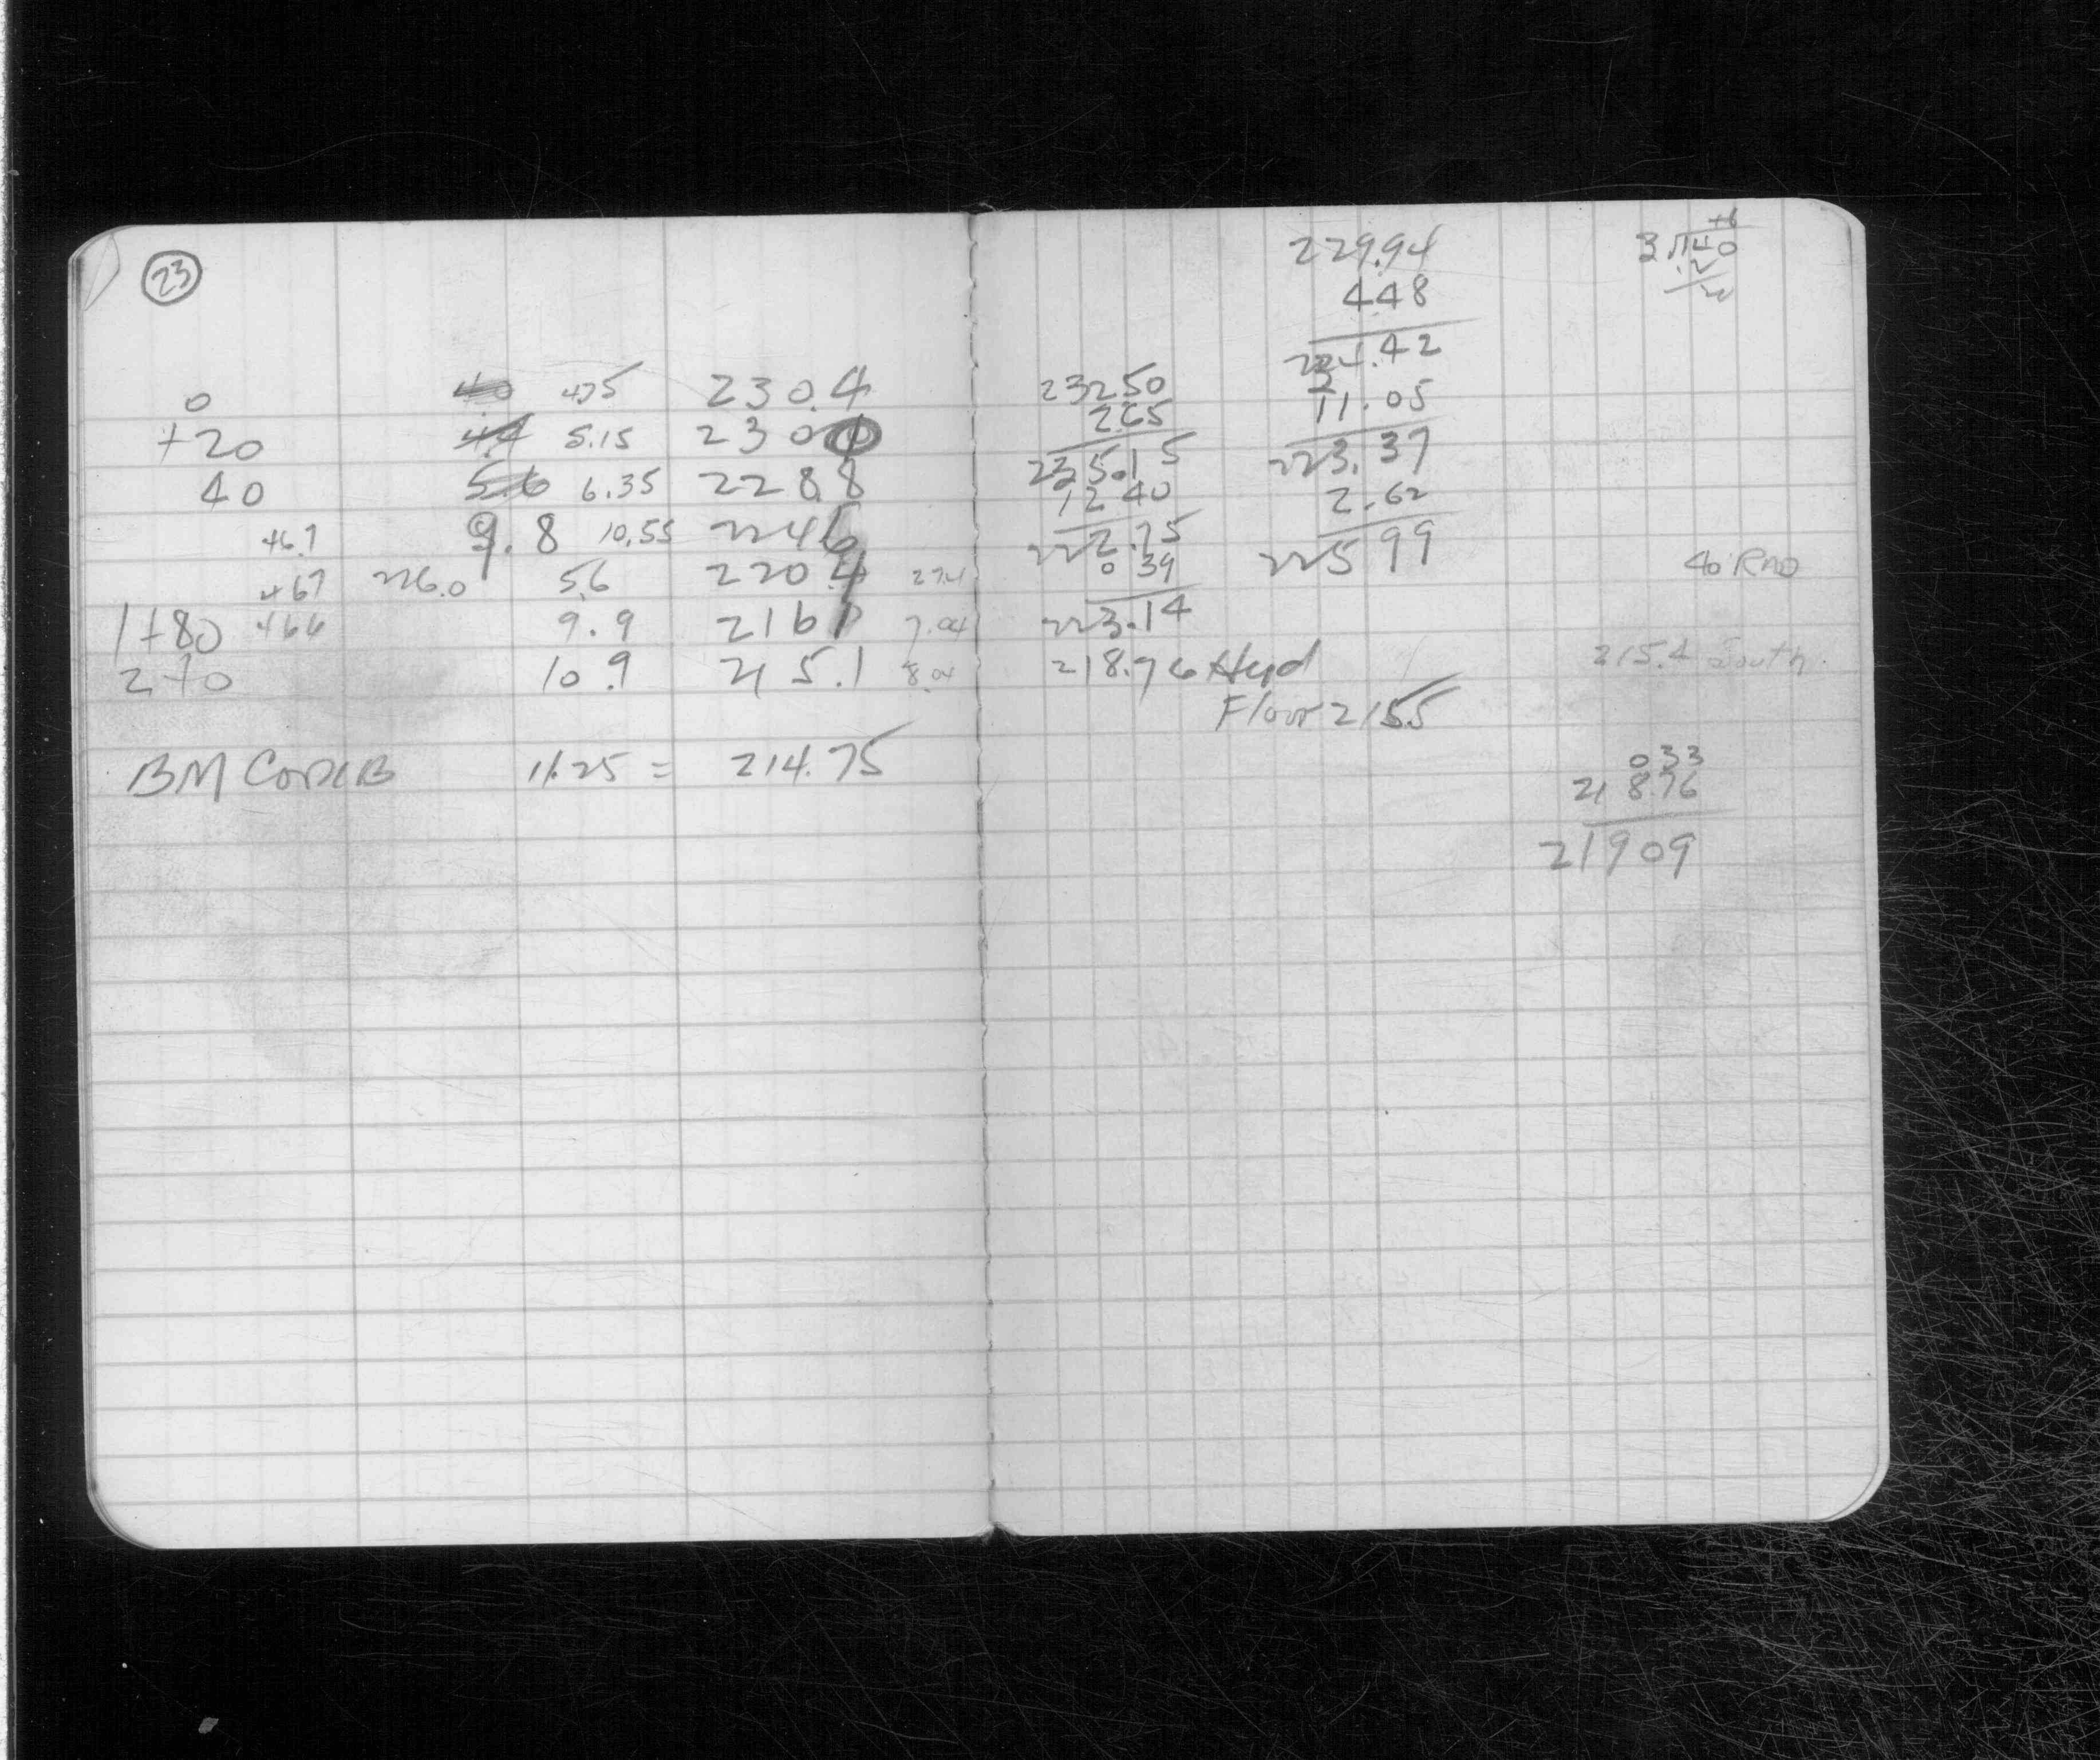 23
0 4.75 230.4
+20 4.4 5.15 230 0
40 5.6 6.35 228.8
46.7 9.8 10.55 224.6
467 226.0 5.6 220.4
1+80 466 9.9 216.1 7.04
2+0 10.9 215.1 8.04
BM Conc B 11.25 = 214.75
232.50
2.65
235.15
12 40
222.75
0 39
223.14
218.76 Hyd
Floor 215.5
229.94
4.48
234.42
11.05
223.37
2.62
225 99
3 140
40 Rao
215.4 South
0 33
218.76
219 09